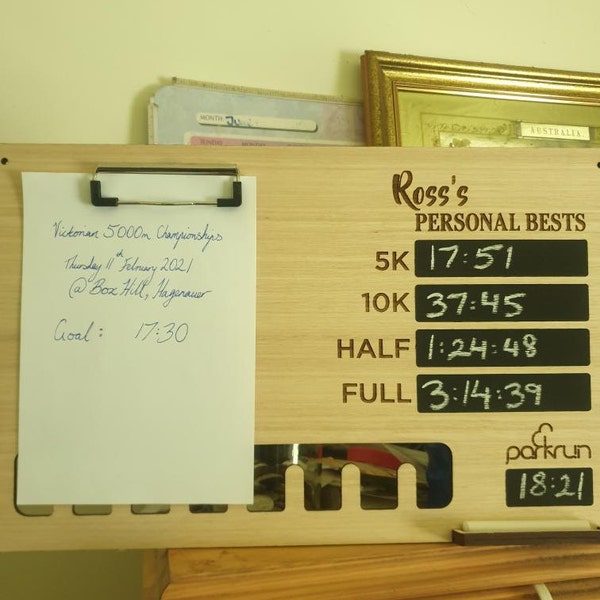 MONTH:
AUSTRALIA
Victorian 5000m Championships
Thursday 11th February 2021
@ Box Hill, Hagenauer
Goal: 17:30
Ross's
PERSONAL BESTS
5K 17:51
10K 37:45
HALF 1:24:48
FULL 3:14:39
parkrun
18:21